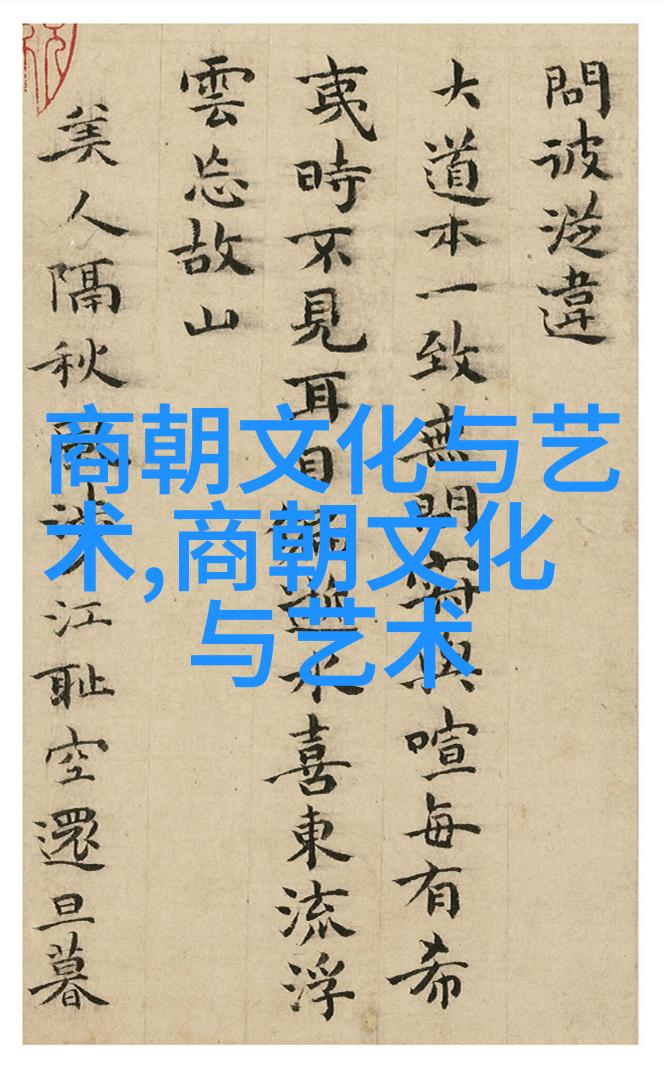 問彼從違
大道本一致無間與喧每有希
夷時不見耳目逝水喜東流浮
雲忘故山
美人隔秋風涉江恥空還旦暮
商朝文化与艺
术,商朝文化
与艺术